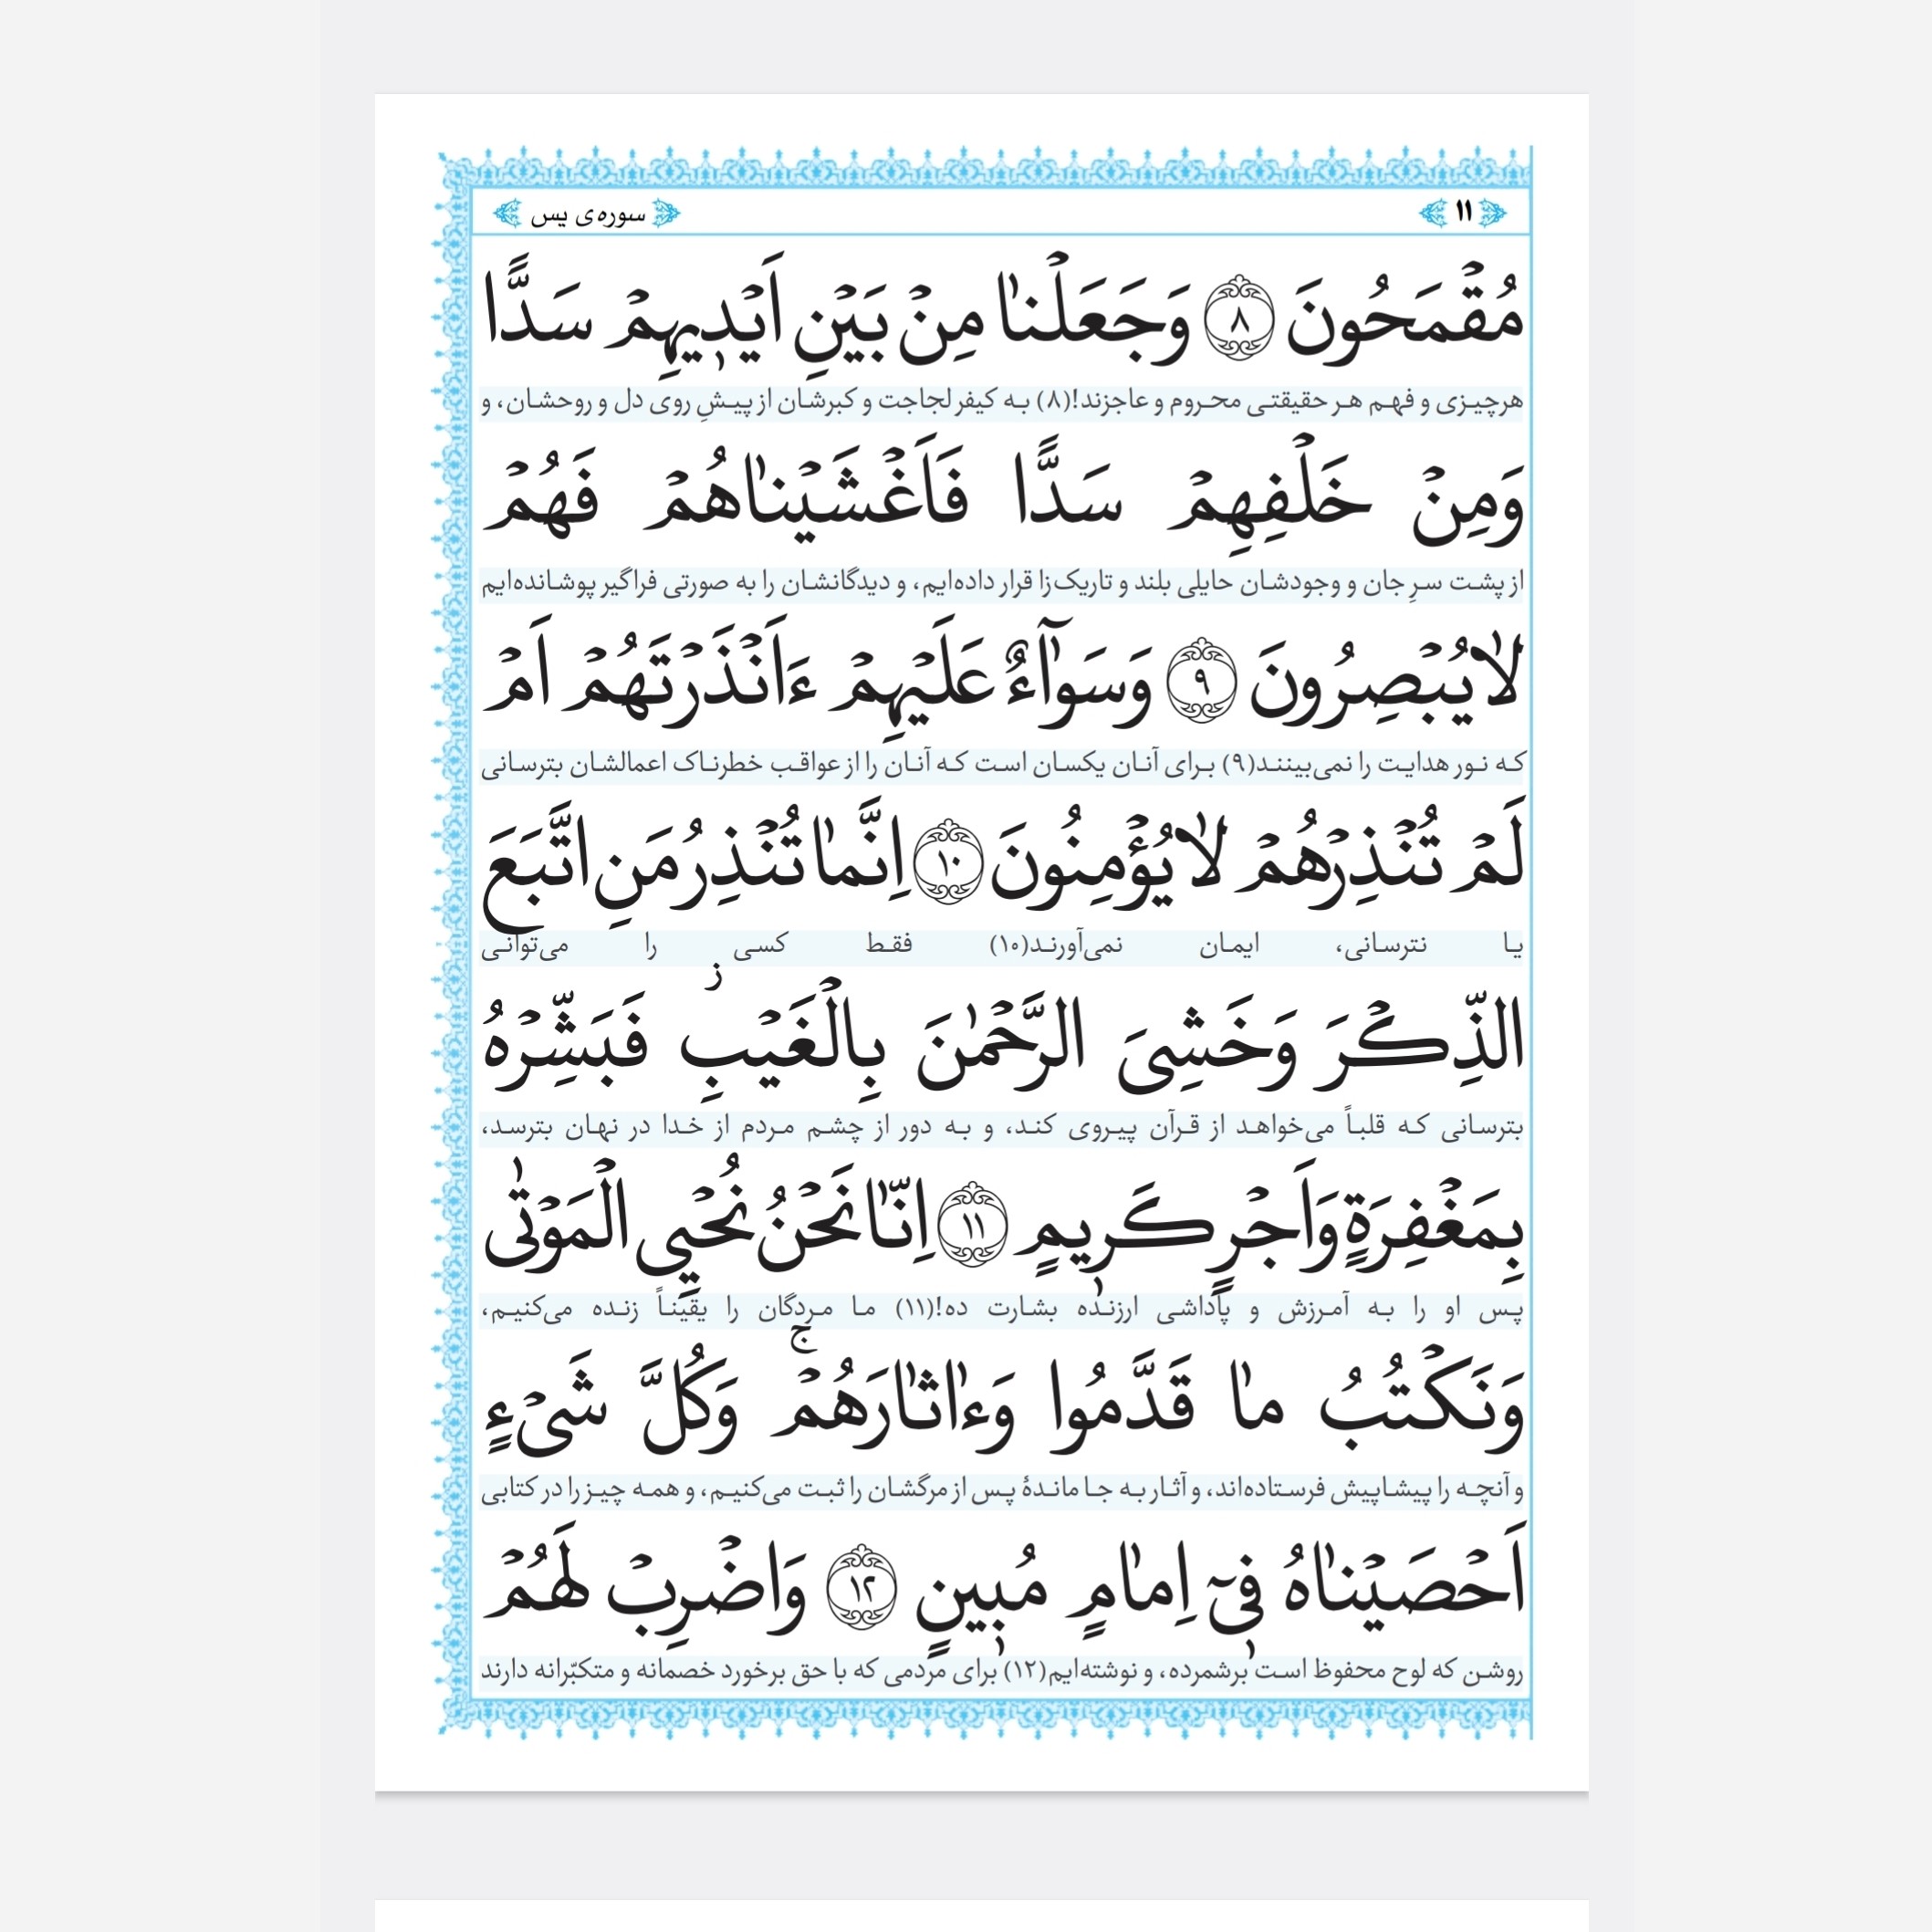 ۱۱ سوره‌ی یس
مُقْمَحُونَ ۸ وَجَعَلْنٰا مِنْ بَيْنِ اَيْدٖيهِمْ سَدًّا
هرچیزی و فهم هر حقیقتی محروم و عاجزند!(۸) به کیفر لجاجت و کبرشان از پیشِ روی دل و روحشان، و
وَمِنْ خَلْفِهِمْ سَدًّا فَاَغْشَيْنٰاهُمْ فَهُمْ
از پشت سرِ جان و وجودشان حایلی بلند و تاریک‌زا قرار داده‌ایم، و دیدگانشان را به صورتی فراگیر پوشانده‌ایم
لاٰيُبْصِرُونَ ۹ وَسَوٰٓاءٌ عَلَيْهِمْ ءَاَنْذَرْتَهُمْ اَمْ
که نور هدایت را نمی‌بینند(۹) برای آنان یکسان است که آنان را از عواقب خطرناک اعمالشان بترسانی
لَمْ تُنْذِرْهُمْ لاٰيُؤْمِنُونَ ۱۰ اِنَّمٰا تُنْذِرُ مَنِ اتَّبَعَ
یا نترسانی، ایمان نمی‌آورند(۱۰) فقط کسی را می‌توانی
الذِّكْرَ وَخَشِىَ الرَّحْمٰنَ بِالْغَيْبِ ز فَبَشِّرْهُ
بترسانی که قلباً می‌خواهد از قرآن پیروی کند، و به دور از چشم مردم از خدا در نهان بترسد،
بِمَغْفِرَةٍ وَاَجْرٍ كَرٖيمٍ ۱۱ اِنّٰا نَحْنُ نُحْيِي الْمَوْتٰى
پس او را به آمرزش و پاداشی ارزنده بشارت ده!(۱۱) ما مردگان را یقیناً زنده می‌کنیم،
وَنَكْتُبُ مٰا قَدَّمُوا وَءٰاثٰارَهُمْ ۚ وَكُلَّ شَىْءٍ
و آنچه را پیشاپیش فرستاده‌اند، و آثار به جا ماندهٔ پس از مرگشان را ثبت می‌کنیم، و همه چیز را در کتابی
اَحْصَيْنٰاهُ فٖىٓ اِمٰامٍ مُبٖينٍ ۱۲ وَاضْرِبْ لَهُمْ
روشن که لوح محفوظ است برشمرده، و نوشته‌ایم(۱۲) برای مردمی که با حق برخورد خصمانه و متکبّرانه دارند